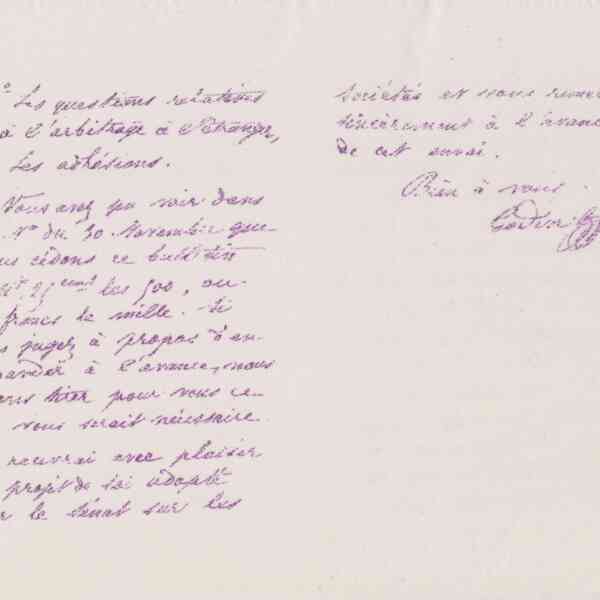 Les questions relatives
à l'arbitrage à l'étranger,
Les adhésions.
Vous avez pu voir dans
N° du 30 Novembre que
us cédons ce bulletin
25 les 500, ou
francs le mille. Si
s jugez à propos d'en-
mander à l'avance, nous
ons tirer pour vous ce
vous serait nécessaire.
recevrai avec plaisir
projet de loi adopté
r le Sénat sur les
sociétés et vous remer
sincèrement à l'avance
de cet envoi.
Bien à vous.
Godin